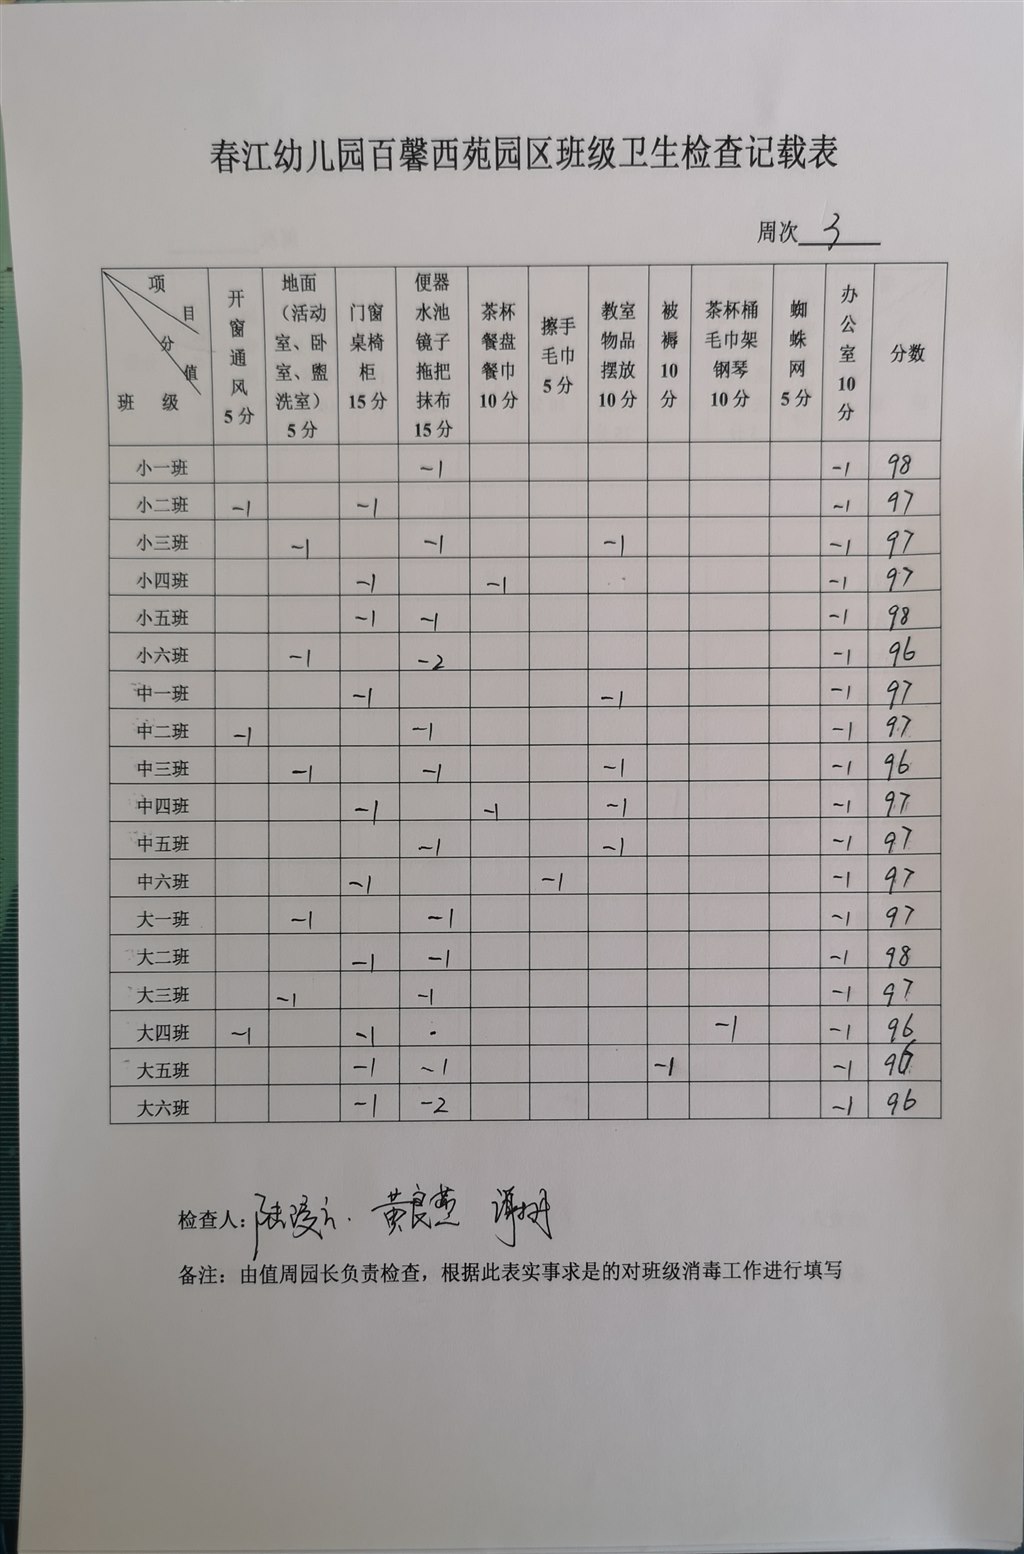 春江幼儿园百馨西苑园区班级卫生检查记载表
周次 3
项目 分值 班级 开窗通风5分 地面（活动室、卧室、盥洗室）5分 门窗桌椅柜15分 便器水池镜子拖把抹布15分 茶杯餐盘餐巾10分 擦手毛巾5分 教室物品摆放10分 被褥10分 茶杯桶毛巾架钢琴10分 蜘蛛网5分 办公室10分 分数
小一班 -1 -1 98
小二班 -1 -1 -1 97
小三班 -1 -1 -1 -1 97
小四班 -1 -1 -1 97
小五班 -1 -1 -1 98
小六班 -1 -2 -1 96
中一班 -1 -1 -1 97
中二班 -1 -1 -1 97
中三班 -1 -1 -1 -1 96
中四班 -1 -1 -1 -1 97
中五班 -1 -1 -1 97
中六班 -1 -1 -1 97
大一班 -1 -1 -1 97
大二班 -1 -1 -1 98
大三班 -1 -1 -1 97
大四班 -1 -1 -1 -1 96
大五班 -1 -1 -1 -1 96
大六班 -1 -2 -1 96
检查人：黄良燕
备注：由值周园长负责检查，根据此表实事求是的对班级消毒工作进行填写